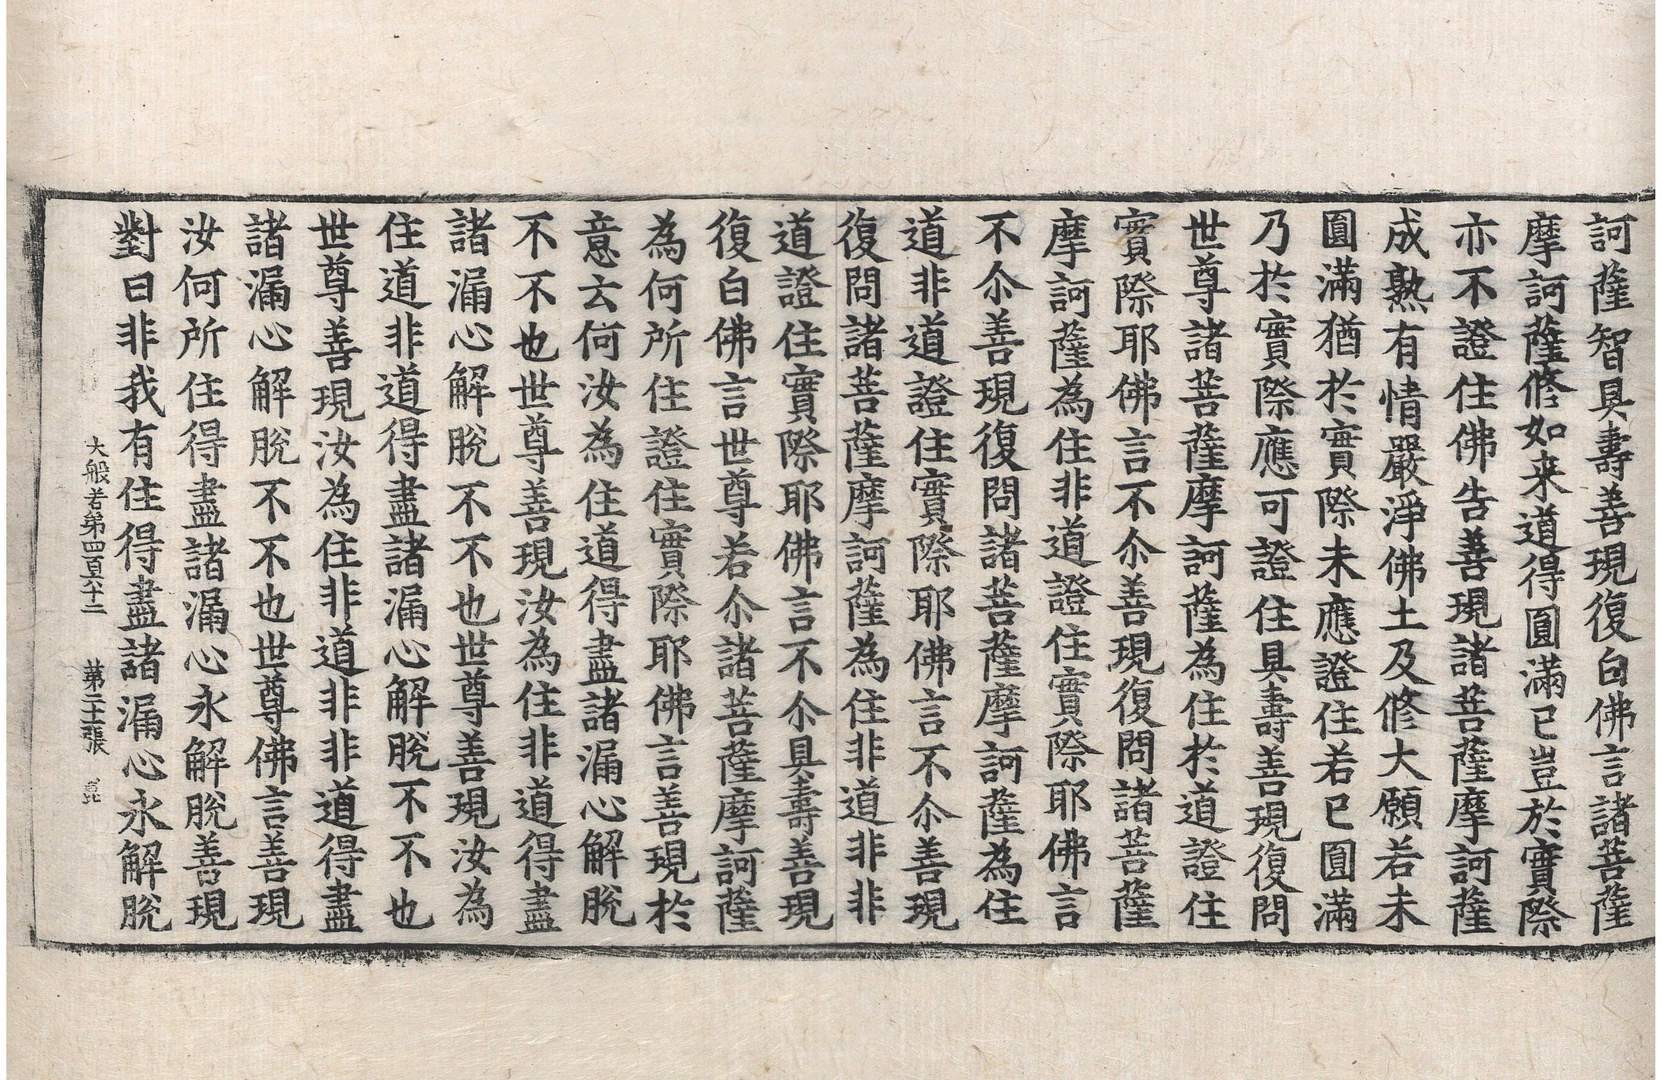 訶薩智具壽善現復白佛言諸菩薩
摩訶薩修如来道得圓滿已豈於實際
亦不證住佛告善現諸菩薩摩訶薩
成熟有情嚴淨佛土及修大願若未
圓滿猶於實際未應證住若已圓滿
乃於實際應可證住具壽善現復問
世尊諸菩薩摩訶薩為住於道證住
實際耶佛言不尒善現復問諸菩薩
摩訶薩為住非道證住實際耶佛言
不尒善現復問諸菩薩摩訶薩為住
道非道證住實際耶佛言不尒善現
復問諸菩薩摩訶薩為住非道非非
道證住實際耶佛言不尒具壽善現
復白佛言世尊若尒諸菩薩摩訶薩
為何所住證住實際耶佛言善現於
意云何汝為住道得盡諸漏心解脫
不不也世尊善現汝為住非道得盡
諸漏心解脫不不也世尊善現汝為
住道非道得盡諸漏心解脫不不也
世尊善現汝為住非道非非道得盡
諸漏心解脫不不也世尊佛言善現
汝何所住得盡諸漏心永解脫善現
對曰非我有住得盡諸漏心永解脫
大般若第四百六十二 第二十張 崑